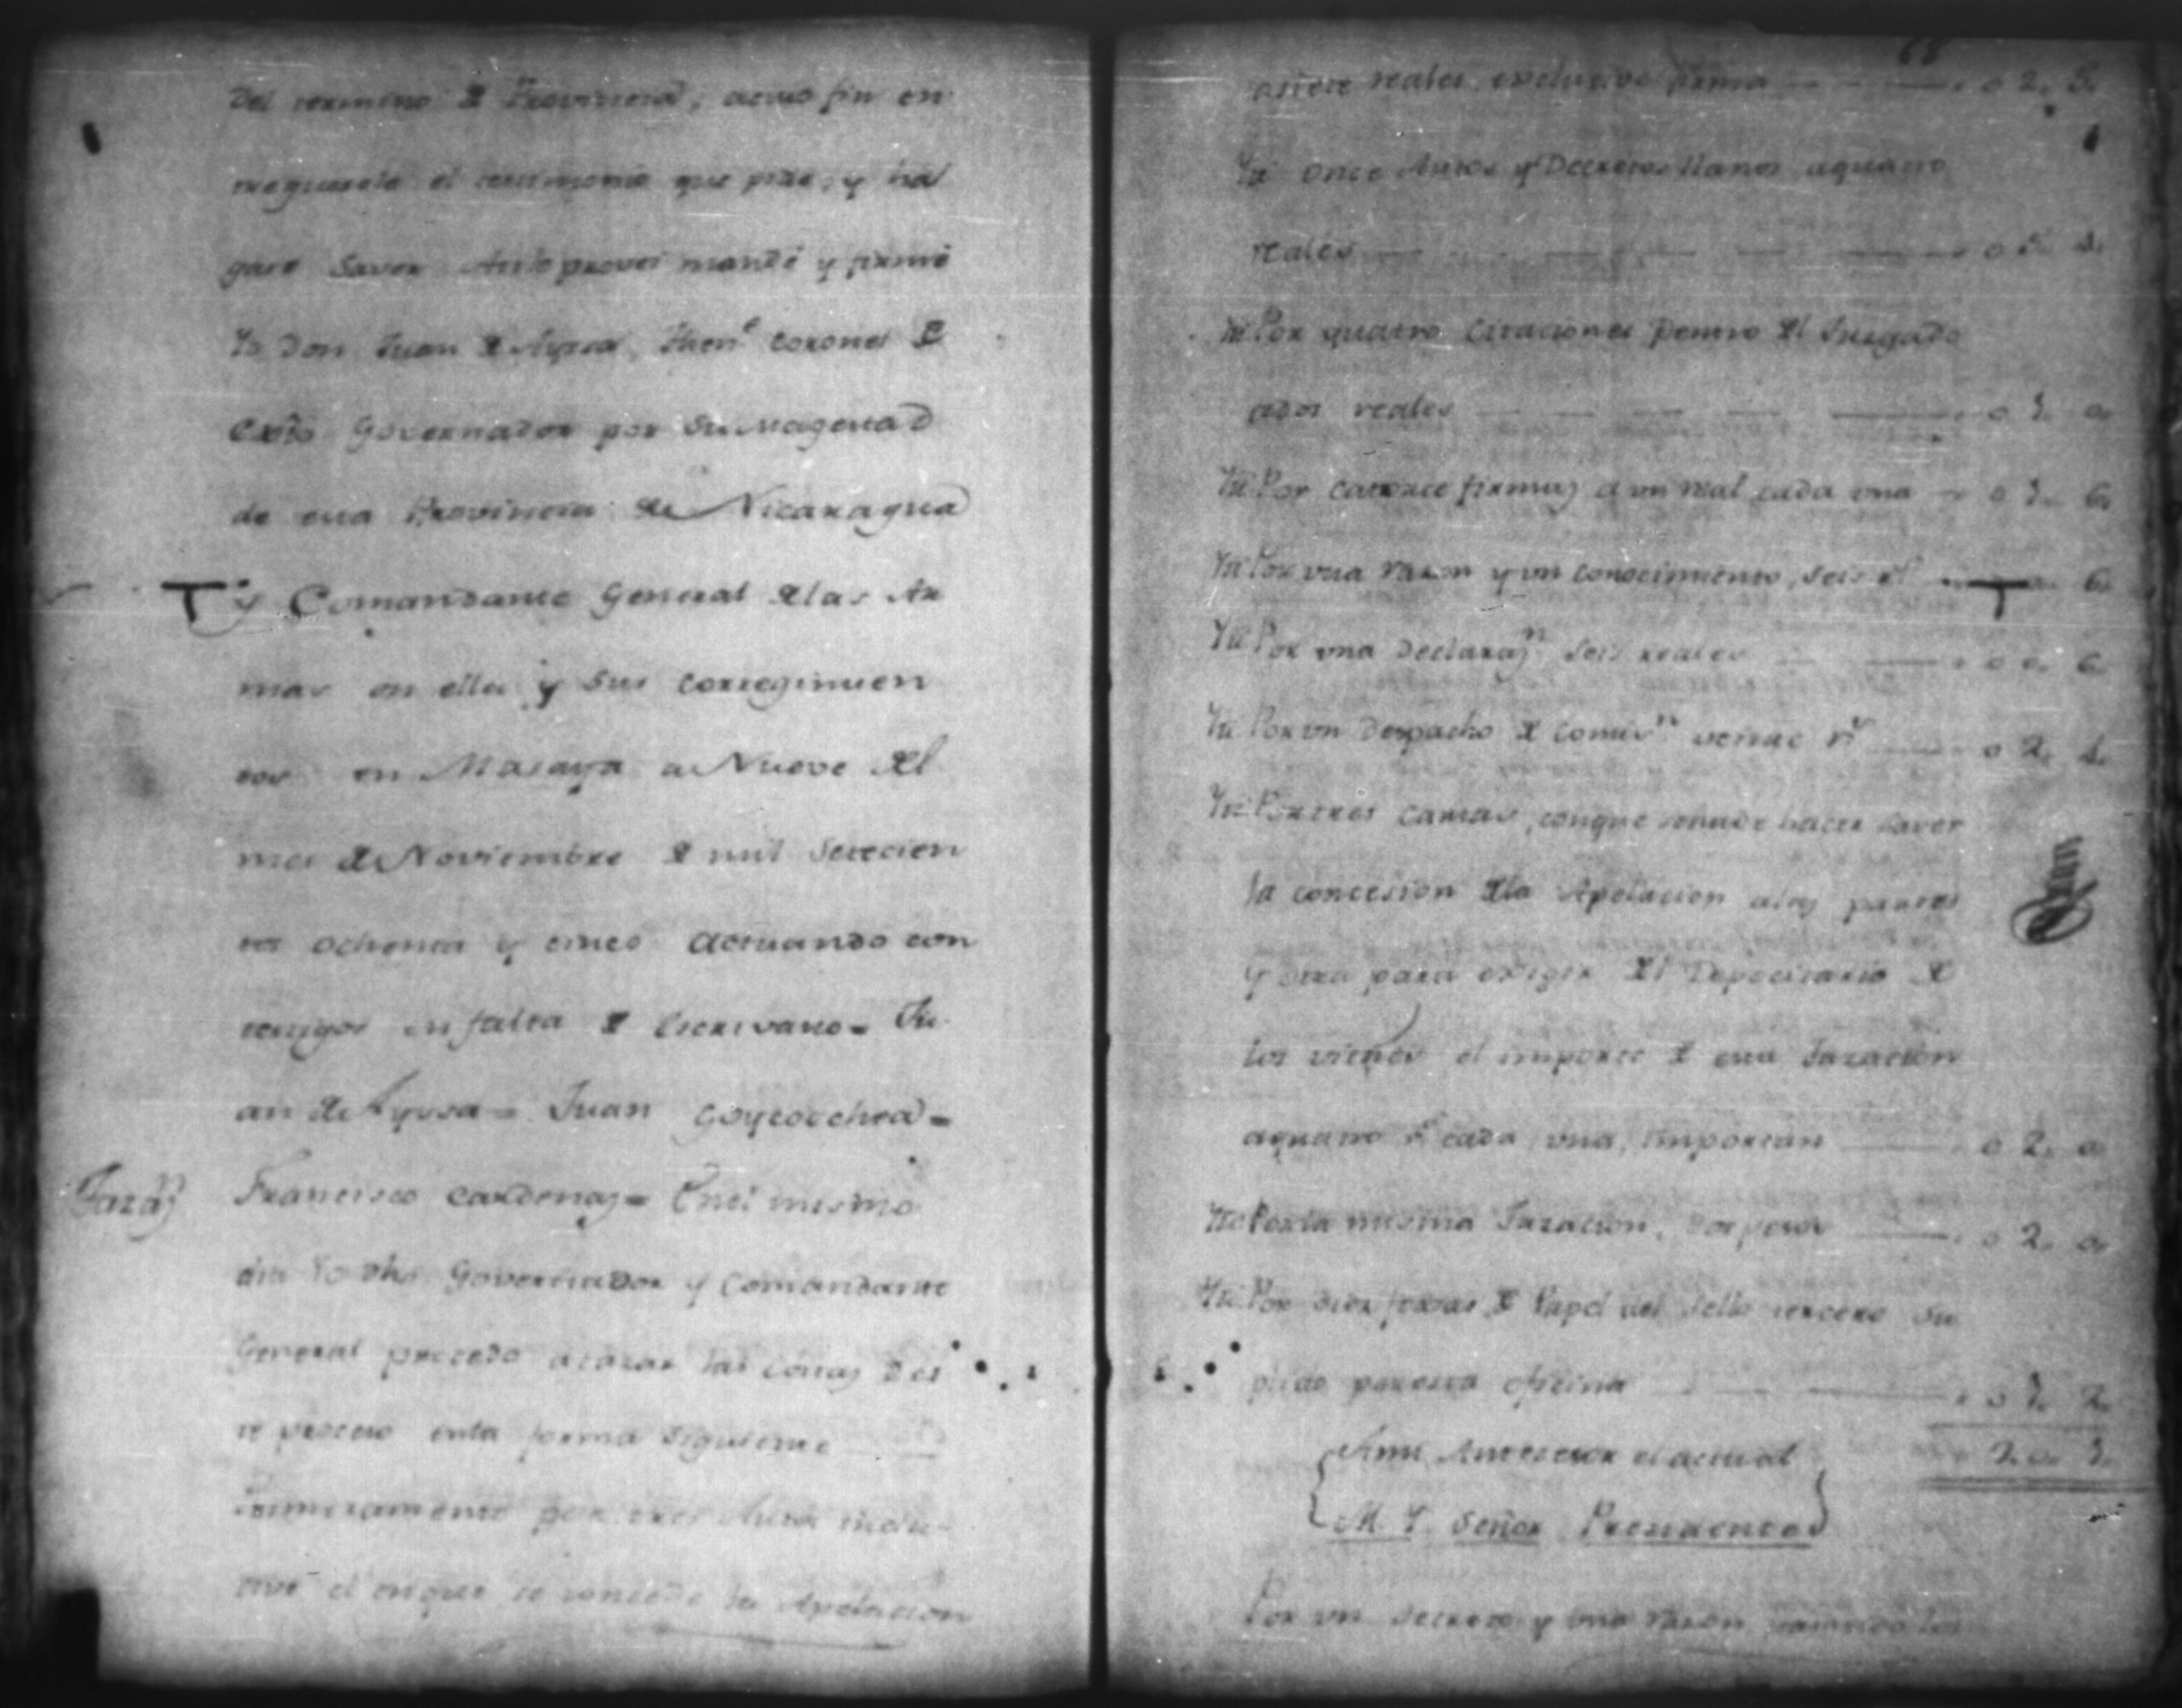 del termino de Provincia, acuio fin en
treguesele el testimonio que pide, y há
gase Saver. Asilo provei mandé y firmé
Yo Don Juan de Ayssa, Then.e Coronel de
Exto Governador por Su Magestad
de esta Provincia de Nicaragua
y Comandante General delas Ar
mas en ella y Sus Corregimien
tos en Masaya a Nueve del
mes de Noviembre de mil Setecien
tos ochenta y cinco actuando con
testigos en falta de Escrivano = Ju
an de Ayssa = Juan Goycoechea =
Francisco Cardenas = En el mismo
Tazas.n
dia Yo dho Governador y Comandante
General procedo a tazar las costas des
te proceso enla forma siguiente
Primeramente por tres Autos inclu
sive el enque se concede la Apelacion
68
asiete reales exclusive firma 02. 5.
Yt. once Autos y Decretos llanos aquatro
reales 05. 4.
Yt. Por quatro Citaciones dentro del Juzgado
ados reales 01. 0.
Yt. Por catorce firmas a un real cada una 01. 6.
Yt. Por una razon y un conocimiento, seis r.s 6.
Yt. Por una Declaraz.n seis reales 00. 6.
Yt. Por un Despacho de Comis.n veinte r.s 02. 4.
Yt. Por tres Cartas, conque se ha de hacer saver
la concesion dela Apelacion alas partes
y otra para exigir del Depocitario de
los vienes el importe de esta Tazacion
aquatro r.s cada una, importan 02. 0.
Yt. Por la misma Tazacion, dos pesos 02. 0.
Yt. Por diez foxas de Papel del Sello tercero Su
plido por esta oficina 01. 2.
Ami Antecesor el actual
M. Y. Señor Presidente
Por un Decreto y una razon